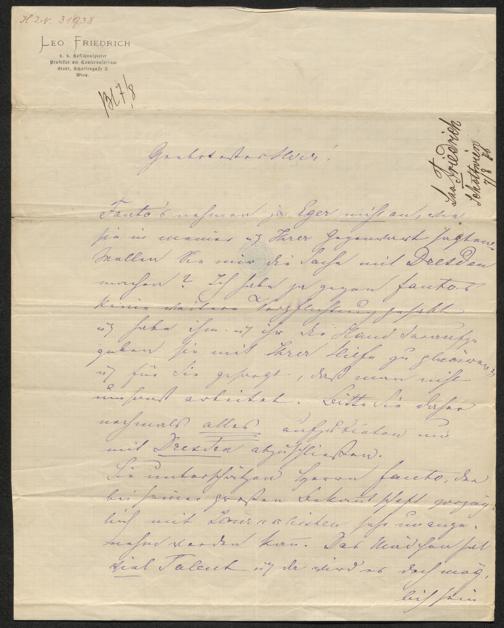 LEO FRIEDRICH
k. k. Hofschauspieler
Professor am Conservatorium
Wien.
Leo Friedrich
Schottwien
7/8 88
Geehrtester Herr!
Fantos nehmen ja Eger nicht an, wie
sie in meiner u Ihrer Gegenwart sagten
Wollen Sie mir die Sache mit Dresden
machen? Ich habe ja gegen Fantos
keine weitere Verpflichtung gehabt
u habe ihm u ihr die Hand darauf ge
geben sie mit Ihrer Hilfe zu
u für Sie gesorgt, daß man nicht
umsonst arbeitet. Bitte Sie daher
nochmals alles aufzubieten und
mit Dresden abzuschließen.
Sie unterschätzen Herrn Fanto, der
bei seiner großen Bekanntschaft
lich mit Journalisten sehr unange-
nehm werden kann. Das Mädchen hat
viel Talent u da wird es doch mög-
lich sein